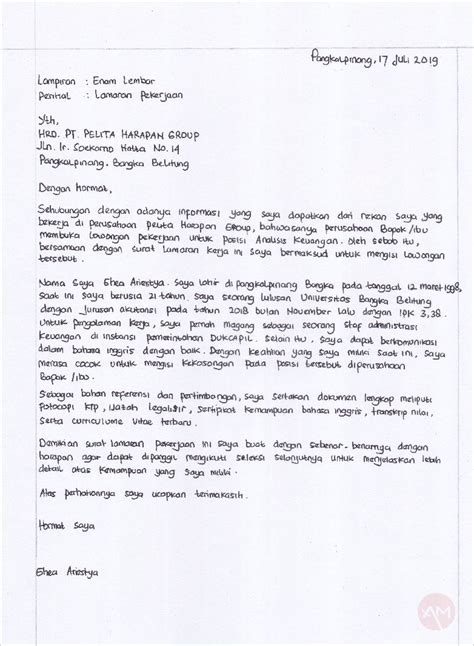 Pangkalpinang, 17 Juli 2019
Lampiran : Enam Lembar
Perihal : Lamaran Pekerjaan
Yth,
HRD. PT. PELITA HARAPAN GROUP
Jln. Ir. Soekarno Hatta No. 14
Pangkalpinang, Bangka Belitung
Dengan Hormat,
Sehubungan dengan adanya informasi yang saya dapatkan dari rekan saya yang
bekerja di perusahaan Pelita Harapan Group, bahwasanya perusahaan Bapak/Ibu
membuka lowongan pekerjaan untuk posisi Analisis Keuangan. Oleh sebab itu,
bersamaan dengan surat lamaran kerja ini saya bermaksud untuk mengisi lowongan
tersebut.
Nama Saya Ghea Ariestya. Saya lahir di pangkalpinang Bangka pada tanggal 12 maret 1998,
saat ini saya berusia 21 tahun. saya seorang lulusan Universitas Bangka Belitung
dengan jurusan akutansi pada tahun 2018 bulan November lalu dengan IPK 3,38.
Untuk pengalaman kerja, saya pernah magang sebagai seorang staf administrasi
keuangan di instansi pemerintahan DUKCAPIL. Selain itu, saya dapat berkomunikasi
dalam bahasa inggris dengan baik. Dengan keahlian yang saya miliki saat ini, Saya
merasa cocok untuk mengisi kekosongan pada posisi tersebut diperusahaan
Bapak/Ibu.
Sebagai bahan referensi dan pertimbangan, saya sertakan dokumen lengkap meliputi
fotocopi KTP, ijazah legalisir, sertifikat kemampuan bahasa inggris, transkrip nilai,
serta curriculume vitae terbaru.
Demikian surat lamaran pekerjaan ini saya buat dengan sebenar-benarnya dengan
harapan agar dapat dipanggil mengikuti seleksi selanjutnya untuk menjelaskan lebih
detail atas kemampuan yang saya miliki.
Atas perhatiannya saya ucapkan terimakasih.
Hormat saya
Ghea Ariestya
AM